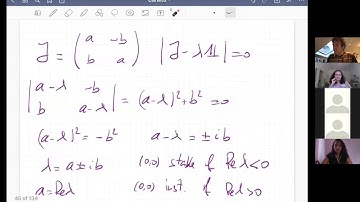 J = ( a -b ) |J - λ𝟙| = 0
( b a )
| a-λ -b |
| b a-λ | = (a-λ)² + b² = 0
(a-λ)² = -b² a-λ = ± ib
λ = a ± ib (0,0) stable if Reλ<0
a = Reλ (0,0) inst. if Reλ>0